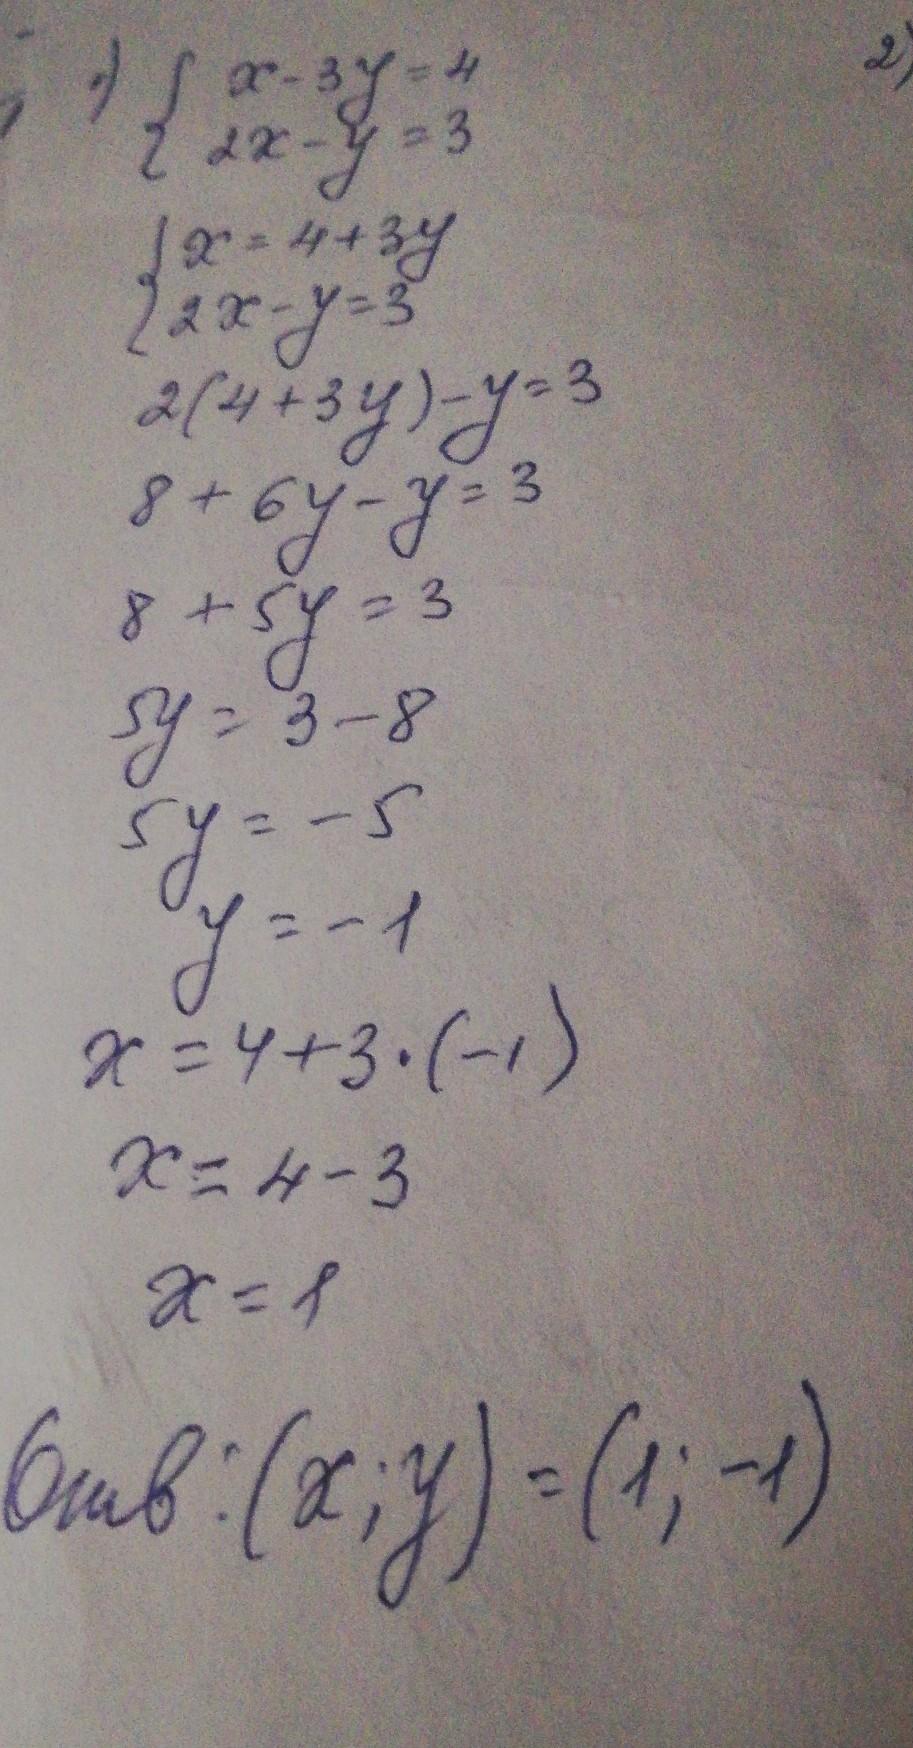 1) { x - 3y = 4 2)
2x - y = 3
{ x = 4 + 3y
2x - y = 3
2(4 + 3y) - y = 3
8 + 6y - y = 3
8 + 5y = 3
5y = 3 - 8
5y = -5
y = -1
x = 4 + 3 · (-1)
x = 4 - 3
x = 1
Отв: (x; y) = (1; -1)